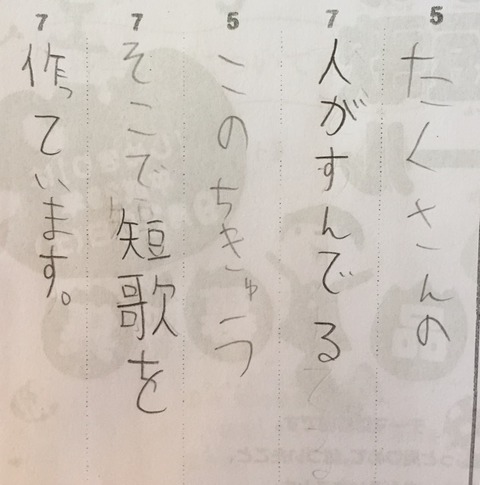 5
たくさんの
7
人がすんでる
5
このちきゅう
7
そこで短歌を
7
作っています。